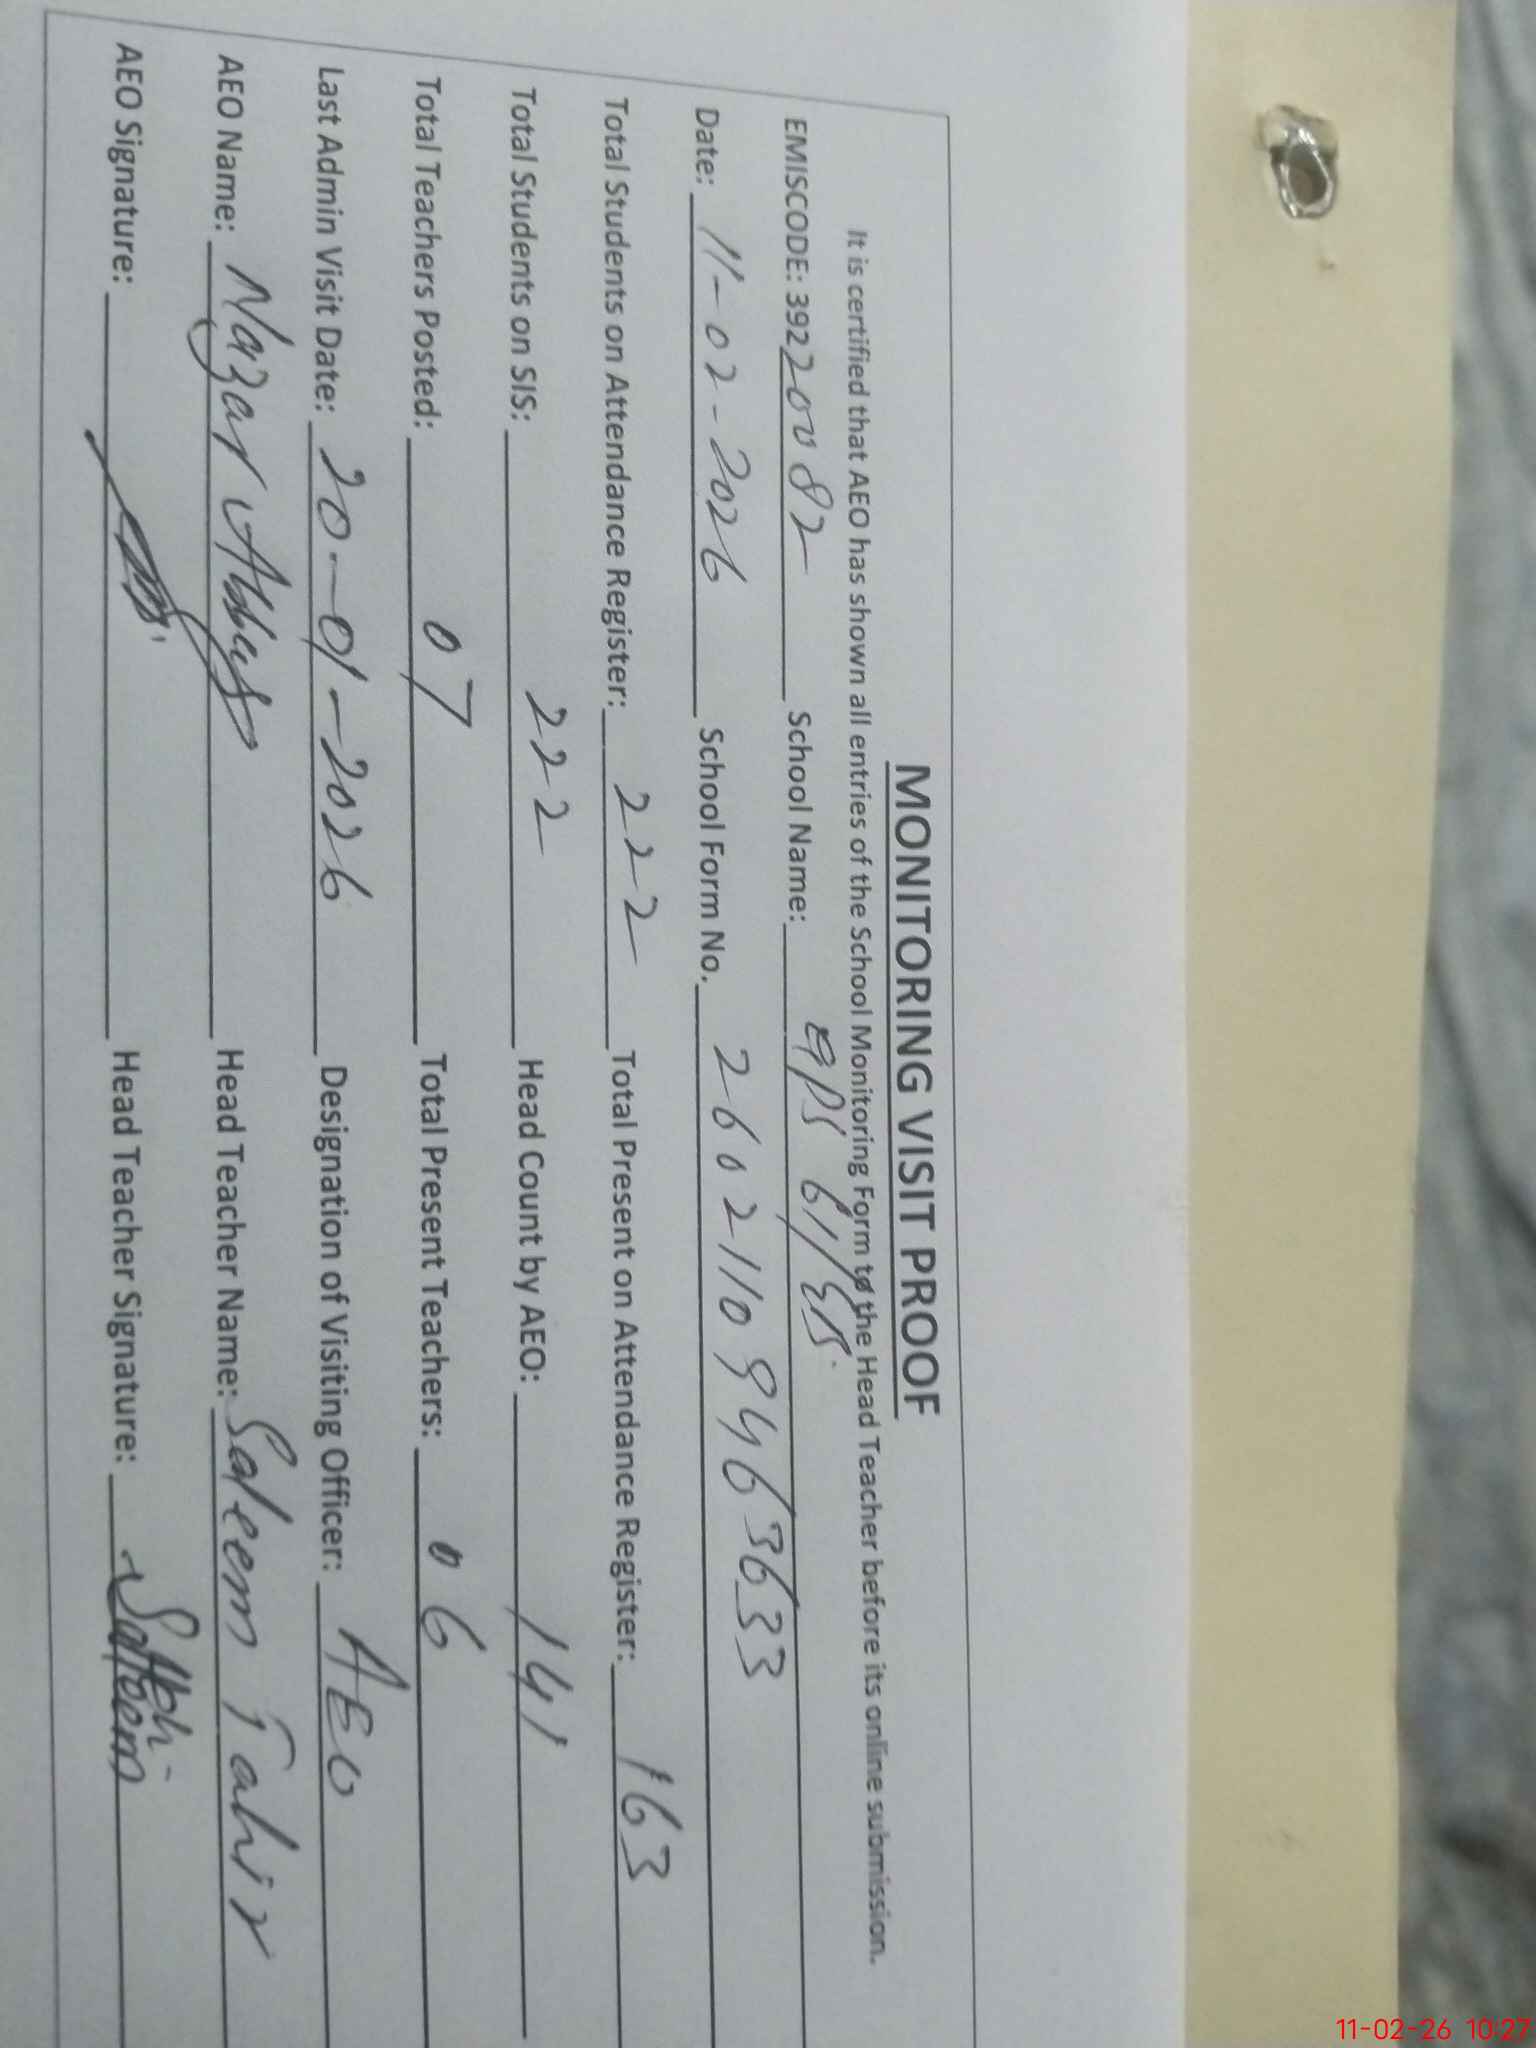 MONITORING VISIT PROOF
It is certified that AEO has shown all entries of the School Monitoring Form to the Head Teacher before its online submission.
EMISCODE: 39220082 School Name: GPS 61/
Date: 11-02-2026 School Form No. 26021109463633
Total Students on Attendance Register: 222 Total Present on Attendance Register: 163
Total Students on SIS: 222 Head Count by AEO: 141
Total Teachers Posted: 07 Total Present Teachers: 06
Last Admin Visit Date: 20-01-2026 Designation of Visiting Officer: AEO
AEO Name: Nazar Abbas Head Teacher Name: Saleem Tahir
AEO Signature: Head Teacher Signature: Saleem
11-02-26 10:27